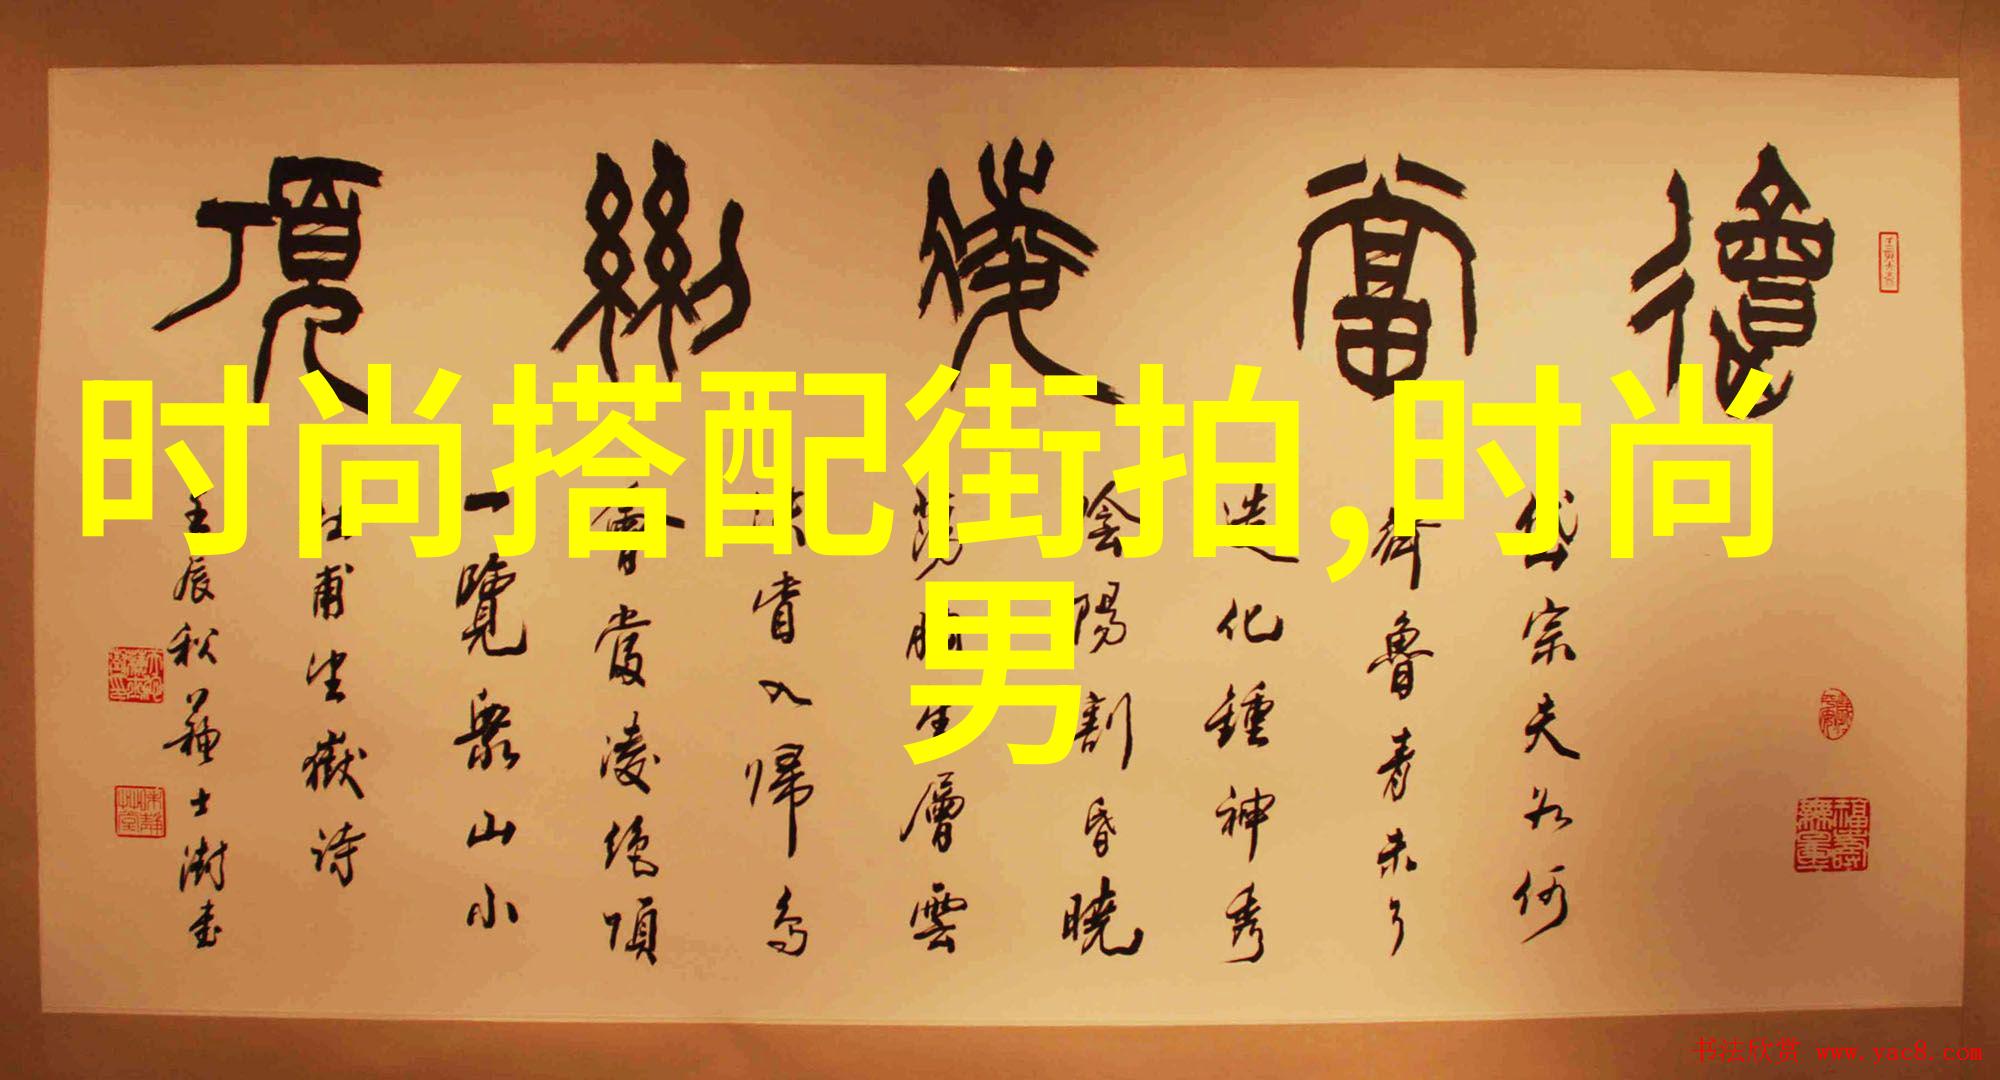 會當凌絕頂
岱宗夫如何
齊魯青未了
造化鍾神秀
陰陽割昏曉
蕩胸生層雲
決眥入歸鳥
會當凌絕頂
一覽眾山小
杜甫望嶽詩
壬辰秋蘇士澍書
福壽無量
时尚搭配街拍,时尚
男
书法欣赏 www.yac8.com